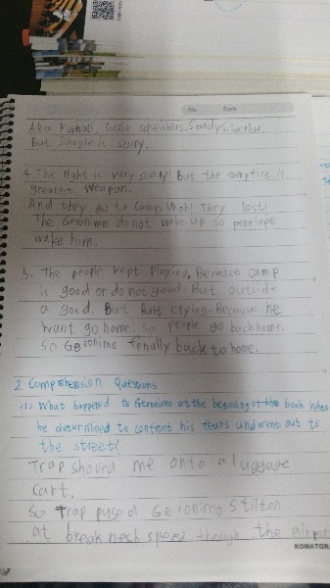 No. Date
But Jungle is scary.
4. The night is very scary! But the campfire is
greatest weapon.
And they go to camp, Woah! They lost!
The Geronimo do not wake up so penelope
wake him.
5. The people kept playing, because camp
is good or do not good. But outside
a good. But crying. Because he
want go home. So people go back home.
So Geronimo finally back to home.
2 Comprehension Questions
(1) What happened to Geronimo at the begining of the book when
he determined to confront his fears and went out to
the street?
Trap shoved me onto a luggage
cart.
So trap Geronimo Stilton
at break neck speed though the airpor
KOMATOR